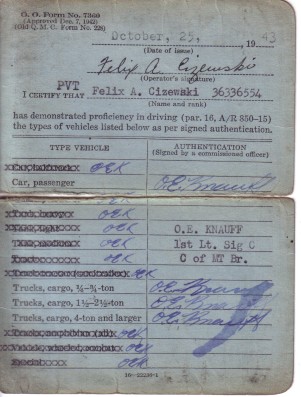 O. O. Form No. 7360
(Approved Dec. 7, 1942)
(Old Q. M. C. Form No. 228)
October, 25, 1943
(Date of issue)
Felix A. Cizewski
(Operator's signature)
PVT
I CERTIFY THAT Felix A. Cizewski 36336554
(Name and rank)
has demonstrated proficiency in driving (par. 16, A/R 850-15)
the types of vehicles listed below as per signed authentication.
TYPE VEHICLE
AUTHENTICATION
(Signed by a commissioned officer)
OEK
Car, passenger O.E. Knauff
OEK
OEK O. E. KNAUFF
OEK 1st Lt. Sig C
OEK C of MT Br.
OEK
Trucks, cargo, ¼-¾-ton O.E. Knauff
Trucks, cargo, 1½-2½-ton O.E. Knauff
Trucks, cargo, 4-ton and larger O.E. Knauff
OEK
OEK
OEK